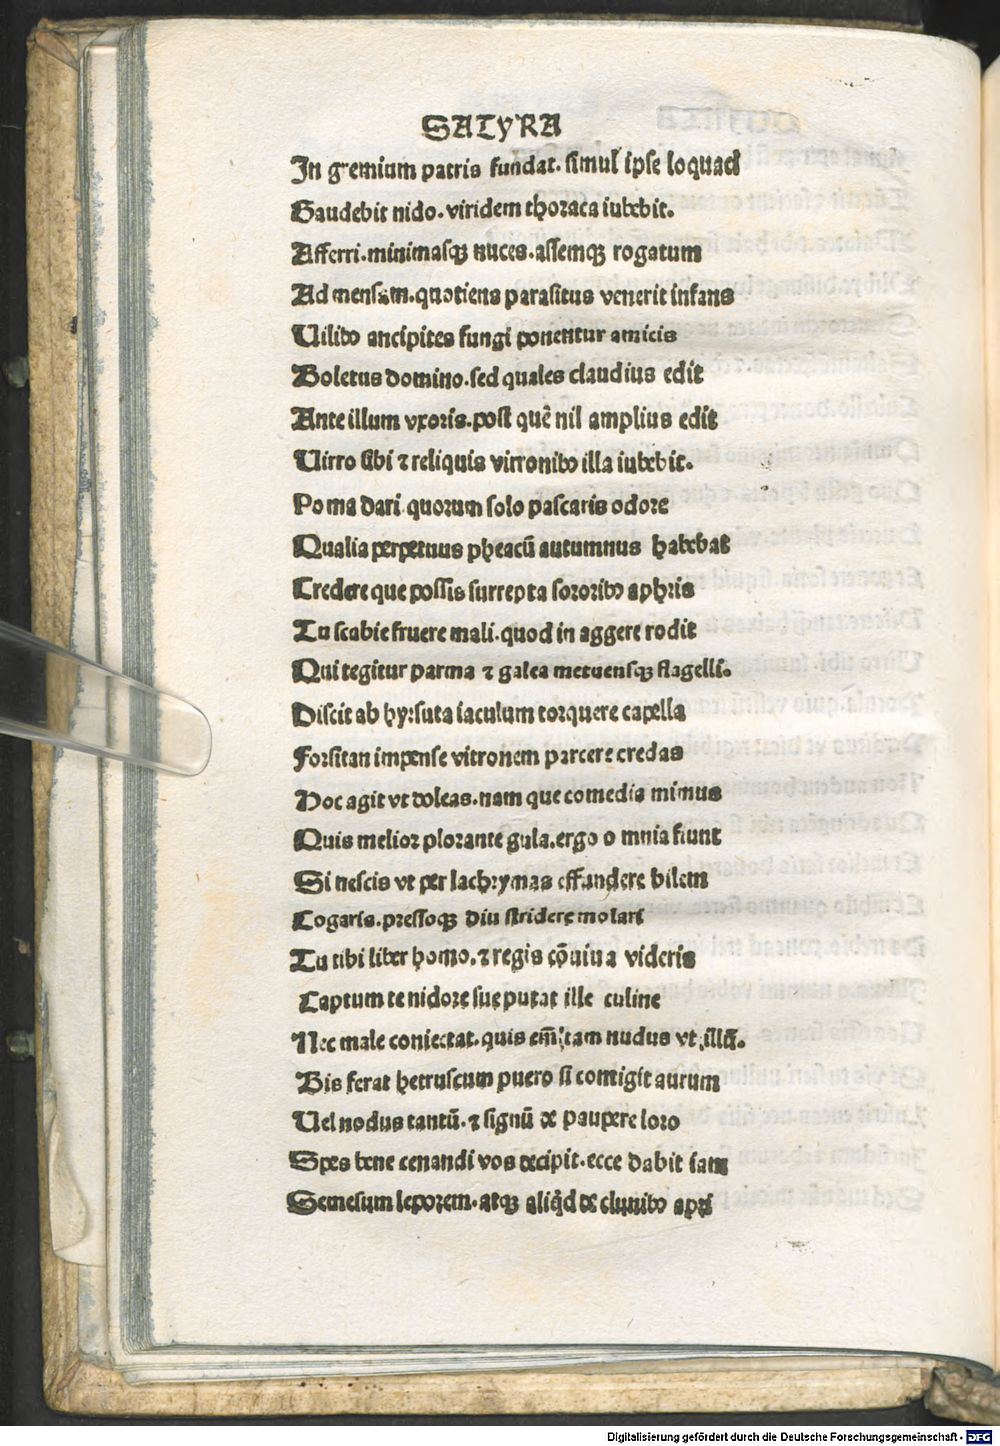 SATYRA
In gremium patris fundat. simul ipse loquaci
Gaudebit nido. viridem thoraca iubebit.
Afferri. minimasqꝫ nuces. assemqꝫ rogatum
Ad mensam. quotiens parasitus venerit infans
Uilibꝰ ancipites fungi ponentur amicis
Boletus domino. sed quales claudius edit
Ante illum vxoris. post quē nil amplius edit
Uirro sibi ⁊ reliquis virronibꝰ illa iubebit.
Poma dari. quorum solo pascaris odore
Qualia perpetuus pheacū autumnus habebat
Credere que possis surrepta sororibꝰ aphris
Tu scabie fruere mali. quod in aggere rodit
Qui tegitur parma ⁊ galea metuensqꝫ flagelli.
Discit ab hyrsuta iaculum torquere capella
Forsitan impense vitronem parcere credas
Hoc agit vt doleas. nam que comedia mimus
Quis melior plorante gula. ergo omnia fiunt
Si nescis vt per lachrymas effundere bilem
Cogaris. pressoqꝫ diu stridere molari
Tu tibi liber homo. ⁊ regis cōuiua videris
Captum te nidore sue putat ille culine
Nec male coniectat. quis em̄ tam nudus vt illū.
Bis ferat hetruscum puero si contigit aurum
Uel nodus tantū. ⁊ signū de paupere loro
Spes bene cenandi vos decipit. ecce dabit iam
Semesum leporem. atqꝫ aliqd de clunibꝰ apri
Digitalisierung gefördert durch die Deutsche Forschungsgemeinschaft - DFG